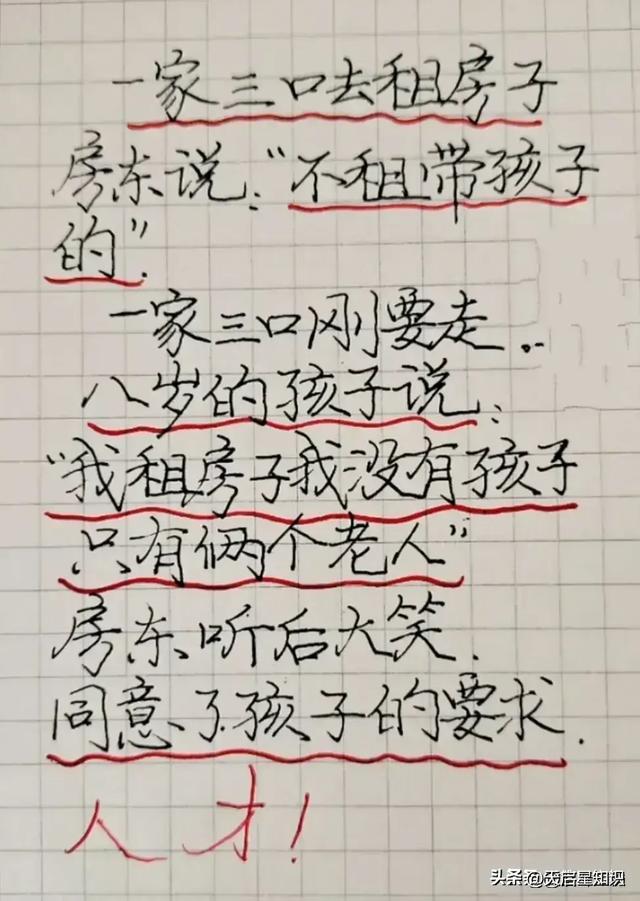 一家三口去租房子
房东说:“不租带孩子
的”.
一家三口刚要走..
八岁的孩子说:
“我租房子我没有孩子
只有俩个老人”
房东听后大笑.
同意了孩子的要求.
人才!
头条@天启星知识